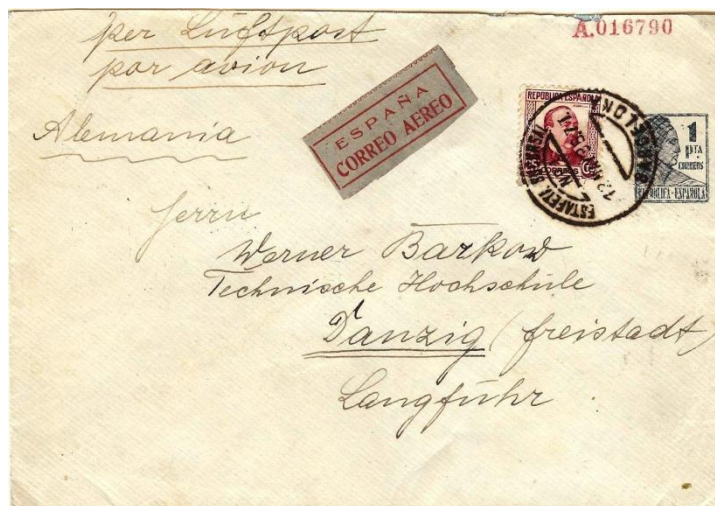 per Luftpost
por avion
A.016790
Alemania
ESPAÑA
CORREO AEREO
REPUBLICA ESPAÑOLA
1
PTA
CORREOS
REPUBLICA-ESPAÑOLA
BARCELONA
Herrn
Werner Barkow
Technische Hochschule
Danzig (freistadt)
Langfuhr.